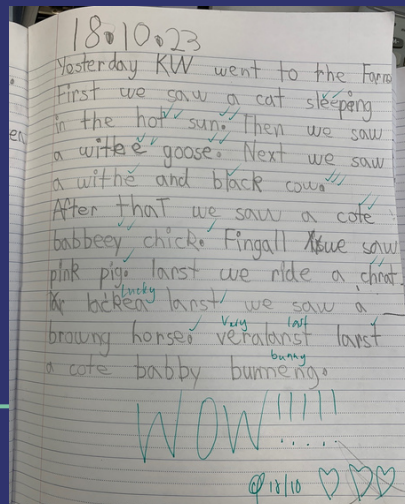 18.10.23
Yesterday KW went to the Farm
First we saw a cat sleeping
in the hot sun. Then we saw
a withe goose. Next we saw
a withe and black cow.
After that we saw a cote
babbeey chick. Fingall we saw
pink pig. larst we ride a
lucky
larst we saw a
browng horse. veralarst larst
very last
a cote babby bunneng.
bunny
WOW!!!!!
18/10